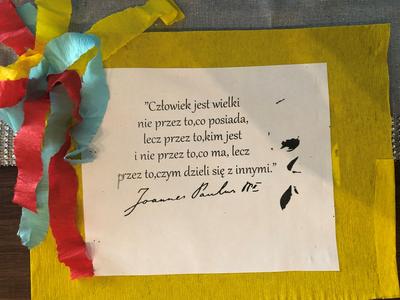 "Człowiek jest wielki
nie przez to,co posiada,
lecz przez to,kim jest
i nie przez to,co ma, lecz
przez to,czym dzieli się z innymi."
Joannes Paulus II